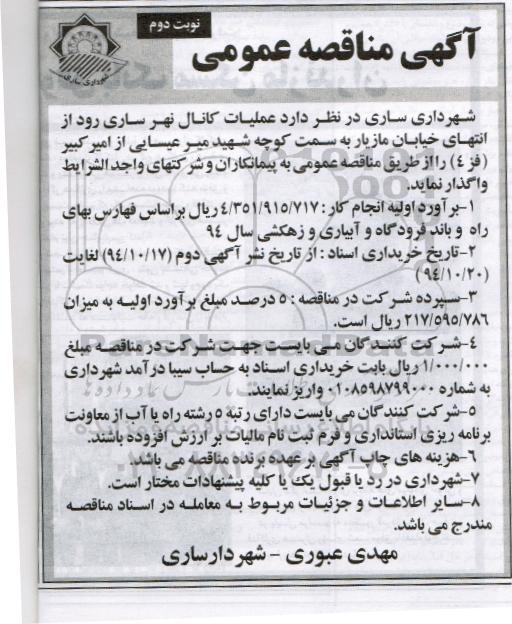 نوبت دوم
آگهی مناقصه عمومی
شهرداری ساری
شهرداری ساری در نظر دارد عملیات کانال نهر ساری رود از
انتهای خیابان مازیار به سمت کوچه شهید میر عیسایی از امیر کبیر
(فز ٤) را از طریق مناقصه عمومی به پیمانکاران و شرکتهای واجد الشرایط
واگذار نماید.
۱-برآورد اولیه انجام کار: ٤/۳٥۱/۹۱٥/۷۱۷ ریال براساس فهارس بهای
راه و باند فرودگاه و آبیاری و زهکشی سال ۹٤
۲-تاریخ خریداری اسناد: از تاریخ نشر آگهی دوم (۹٤/۱۰/۱۷) لغایت
(۹٤/۱۰/۲۰)
۳-سپرده شرکت در مناقصه: ٥ درصد مبلغ برآورد اولیه به میزان
۲۱۷/٥۹٥/۷۸٦ ریال است.
٤-شرکت کنندگان می بایست جهت شرکت در مناقصه مبلغ
۱/۰۰۰/۰۰۰ ریال بابت خریداری اسناد به حساب سیبا درآمد شهرداری
به شماره ۰۱۰۸٥۹۸۷۹۹۰۰۰ واریز نمایند.
٥-شرکت کنندگان می بایست دارای رتبه ٥ رشته راه یا آب از معاونت
برنامه ریزی استانداری و فرم ثبت نام مالیات بر ارزش افزوده باشند.
٦-هزینه های چاپ آگهی بر عهده برنده مناقصه می باشد.
۷-شهرداری در رد یا قبول یک یا کلیه پیشنهادات مختار است.
۸-سایر اطلاعات و جزئیات مربوط به معامله در اسناد مناقصه
مندرج می باشد.
مهدی عبوری - شهردار ساری